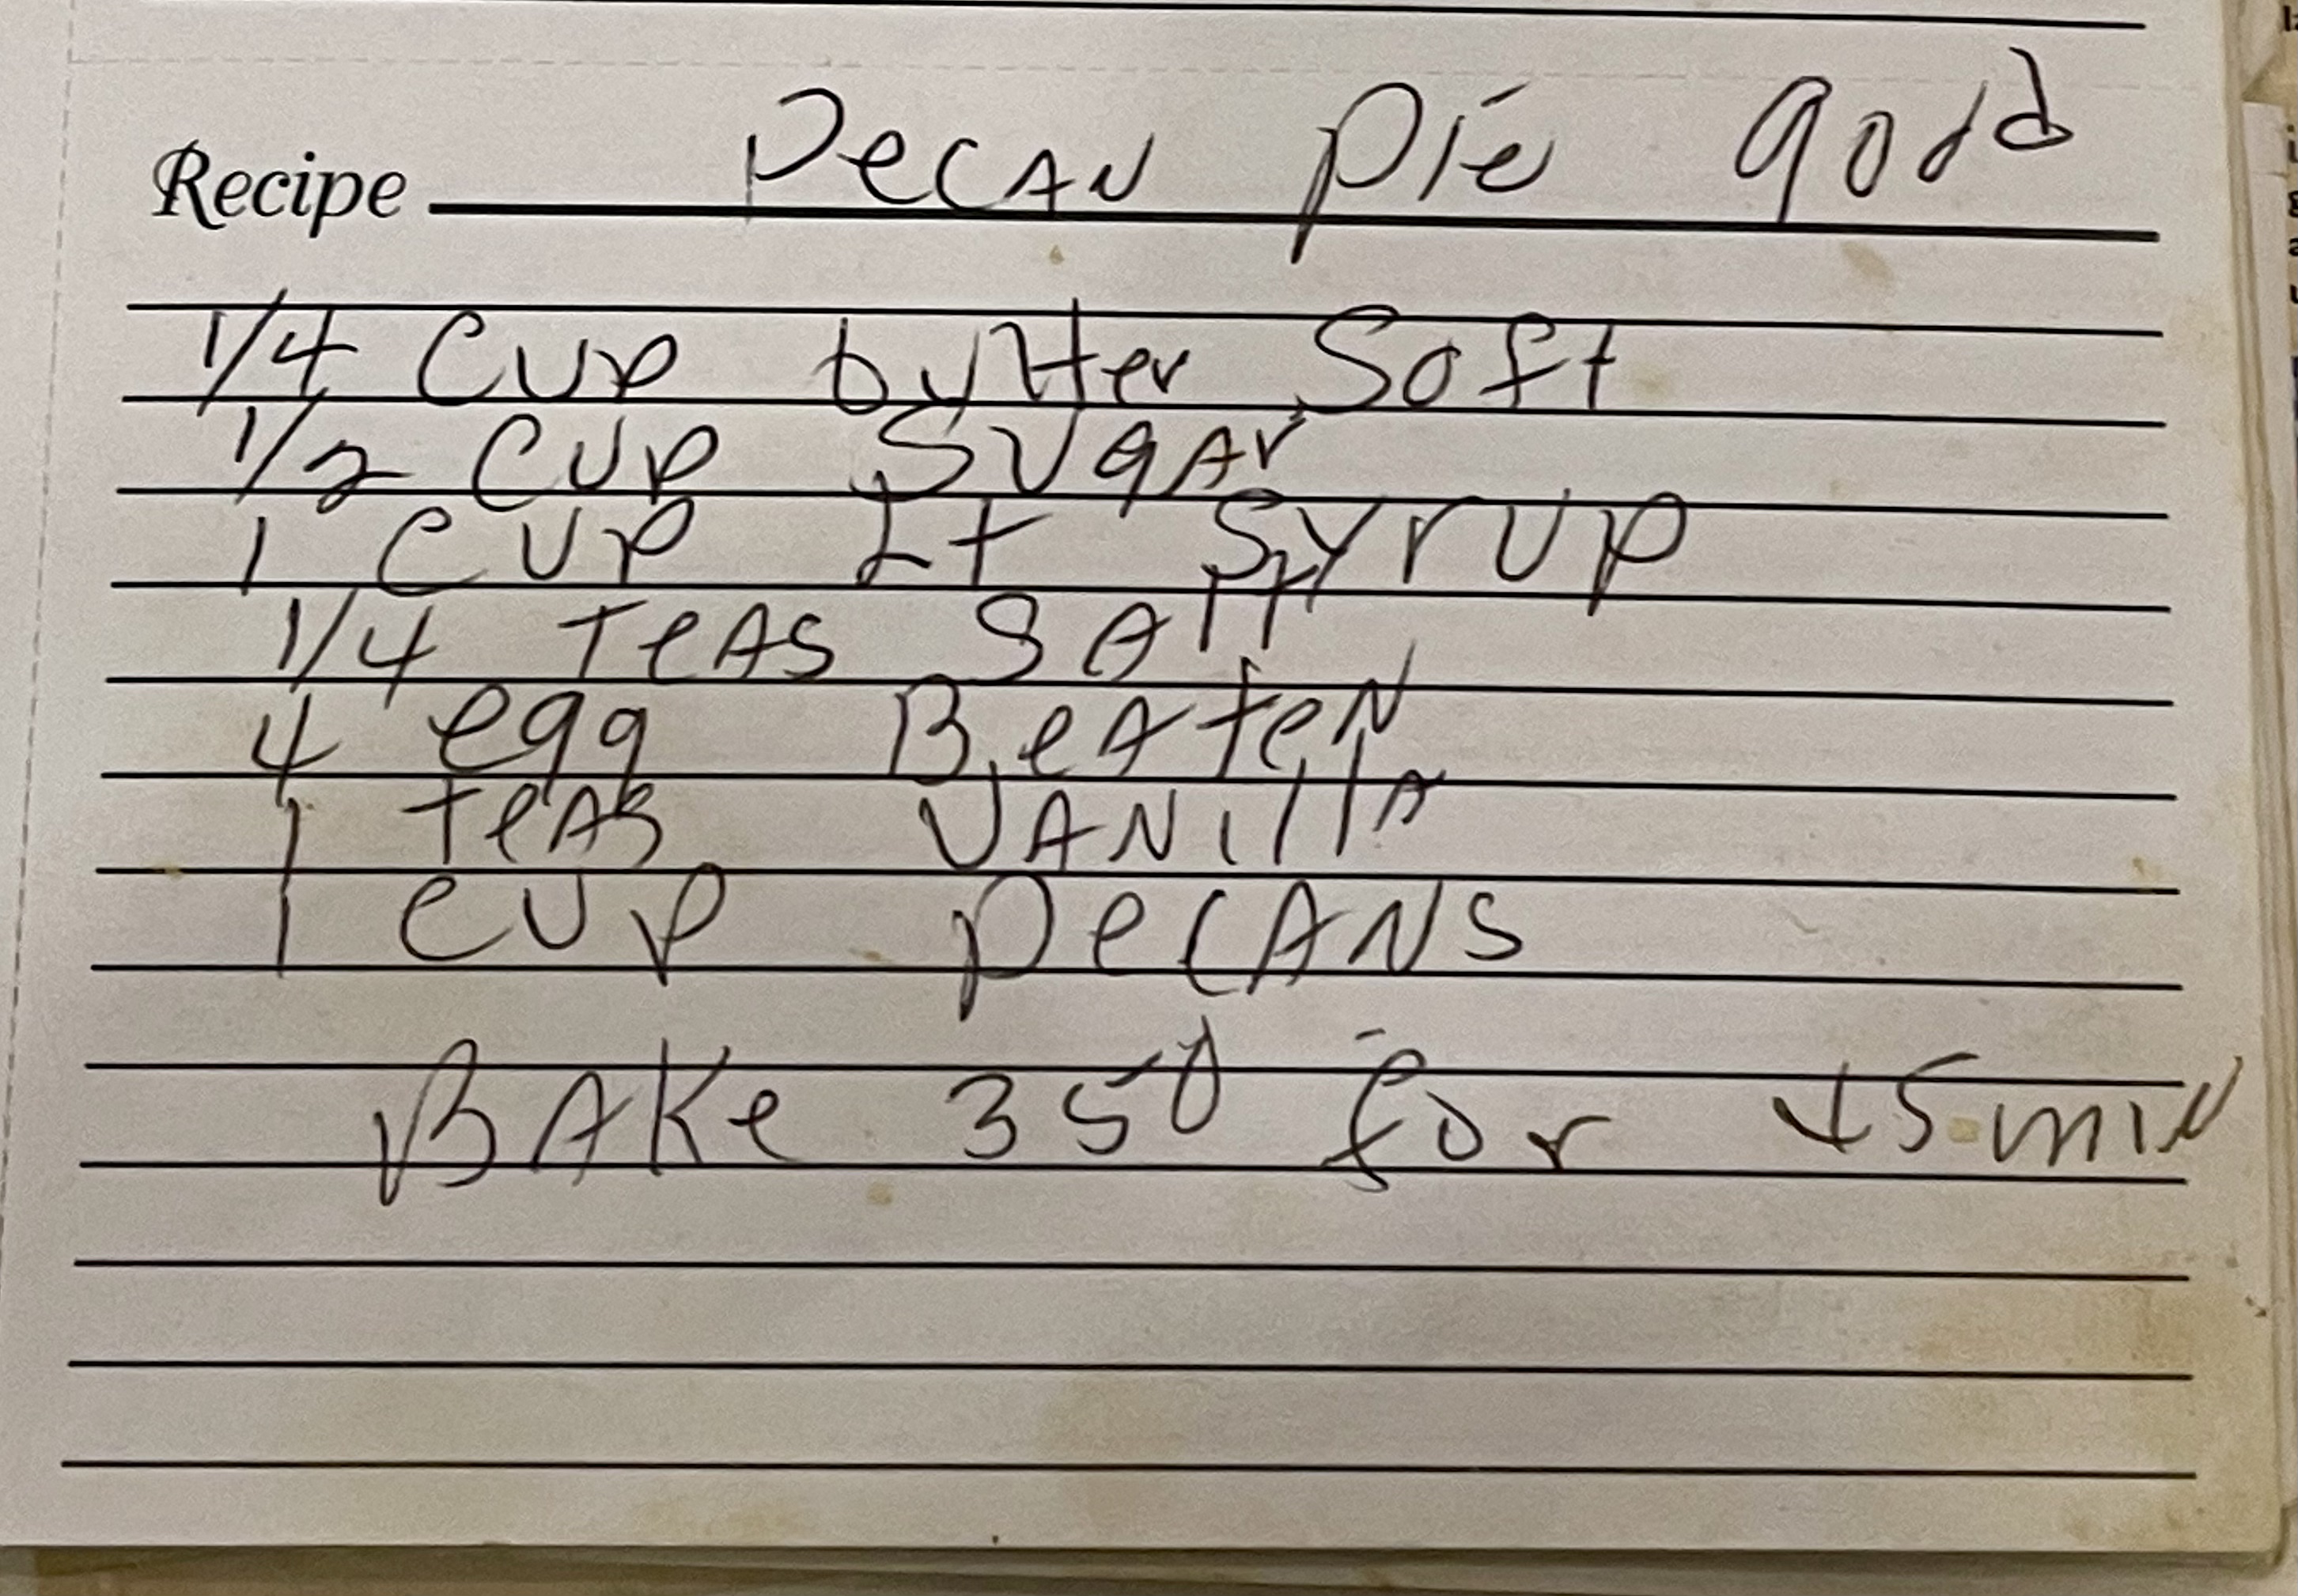 Recipe Pecan Pie good
1/4 Cup butter Soft
1/2 Cup Sugar
1 Cup Lt Syrup
1/4 Teas Salt
4 egg Beaten
1 Teas Vanilla
1 Cup Pecans
Bake 350 for 45 min